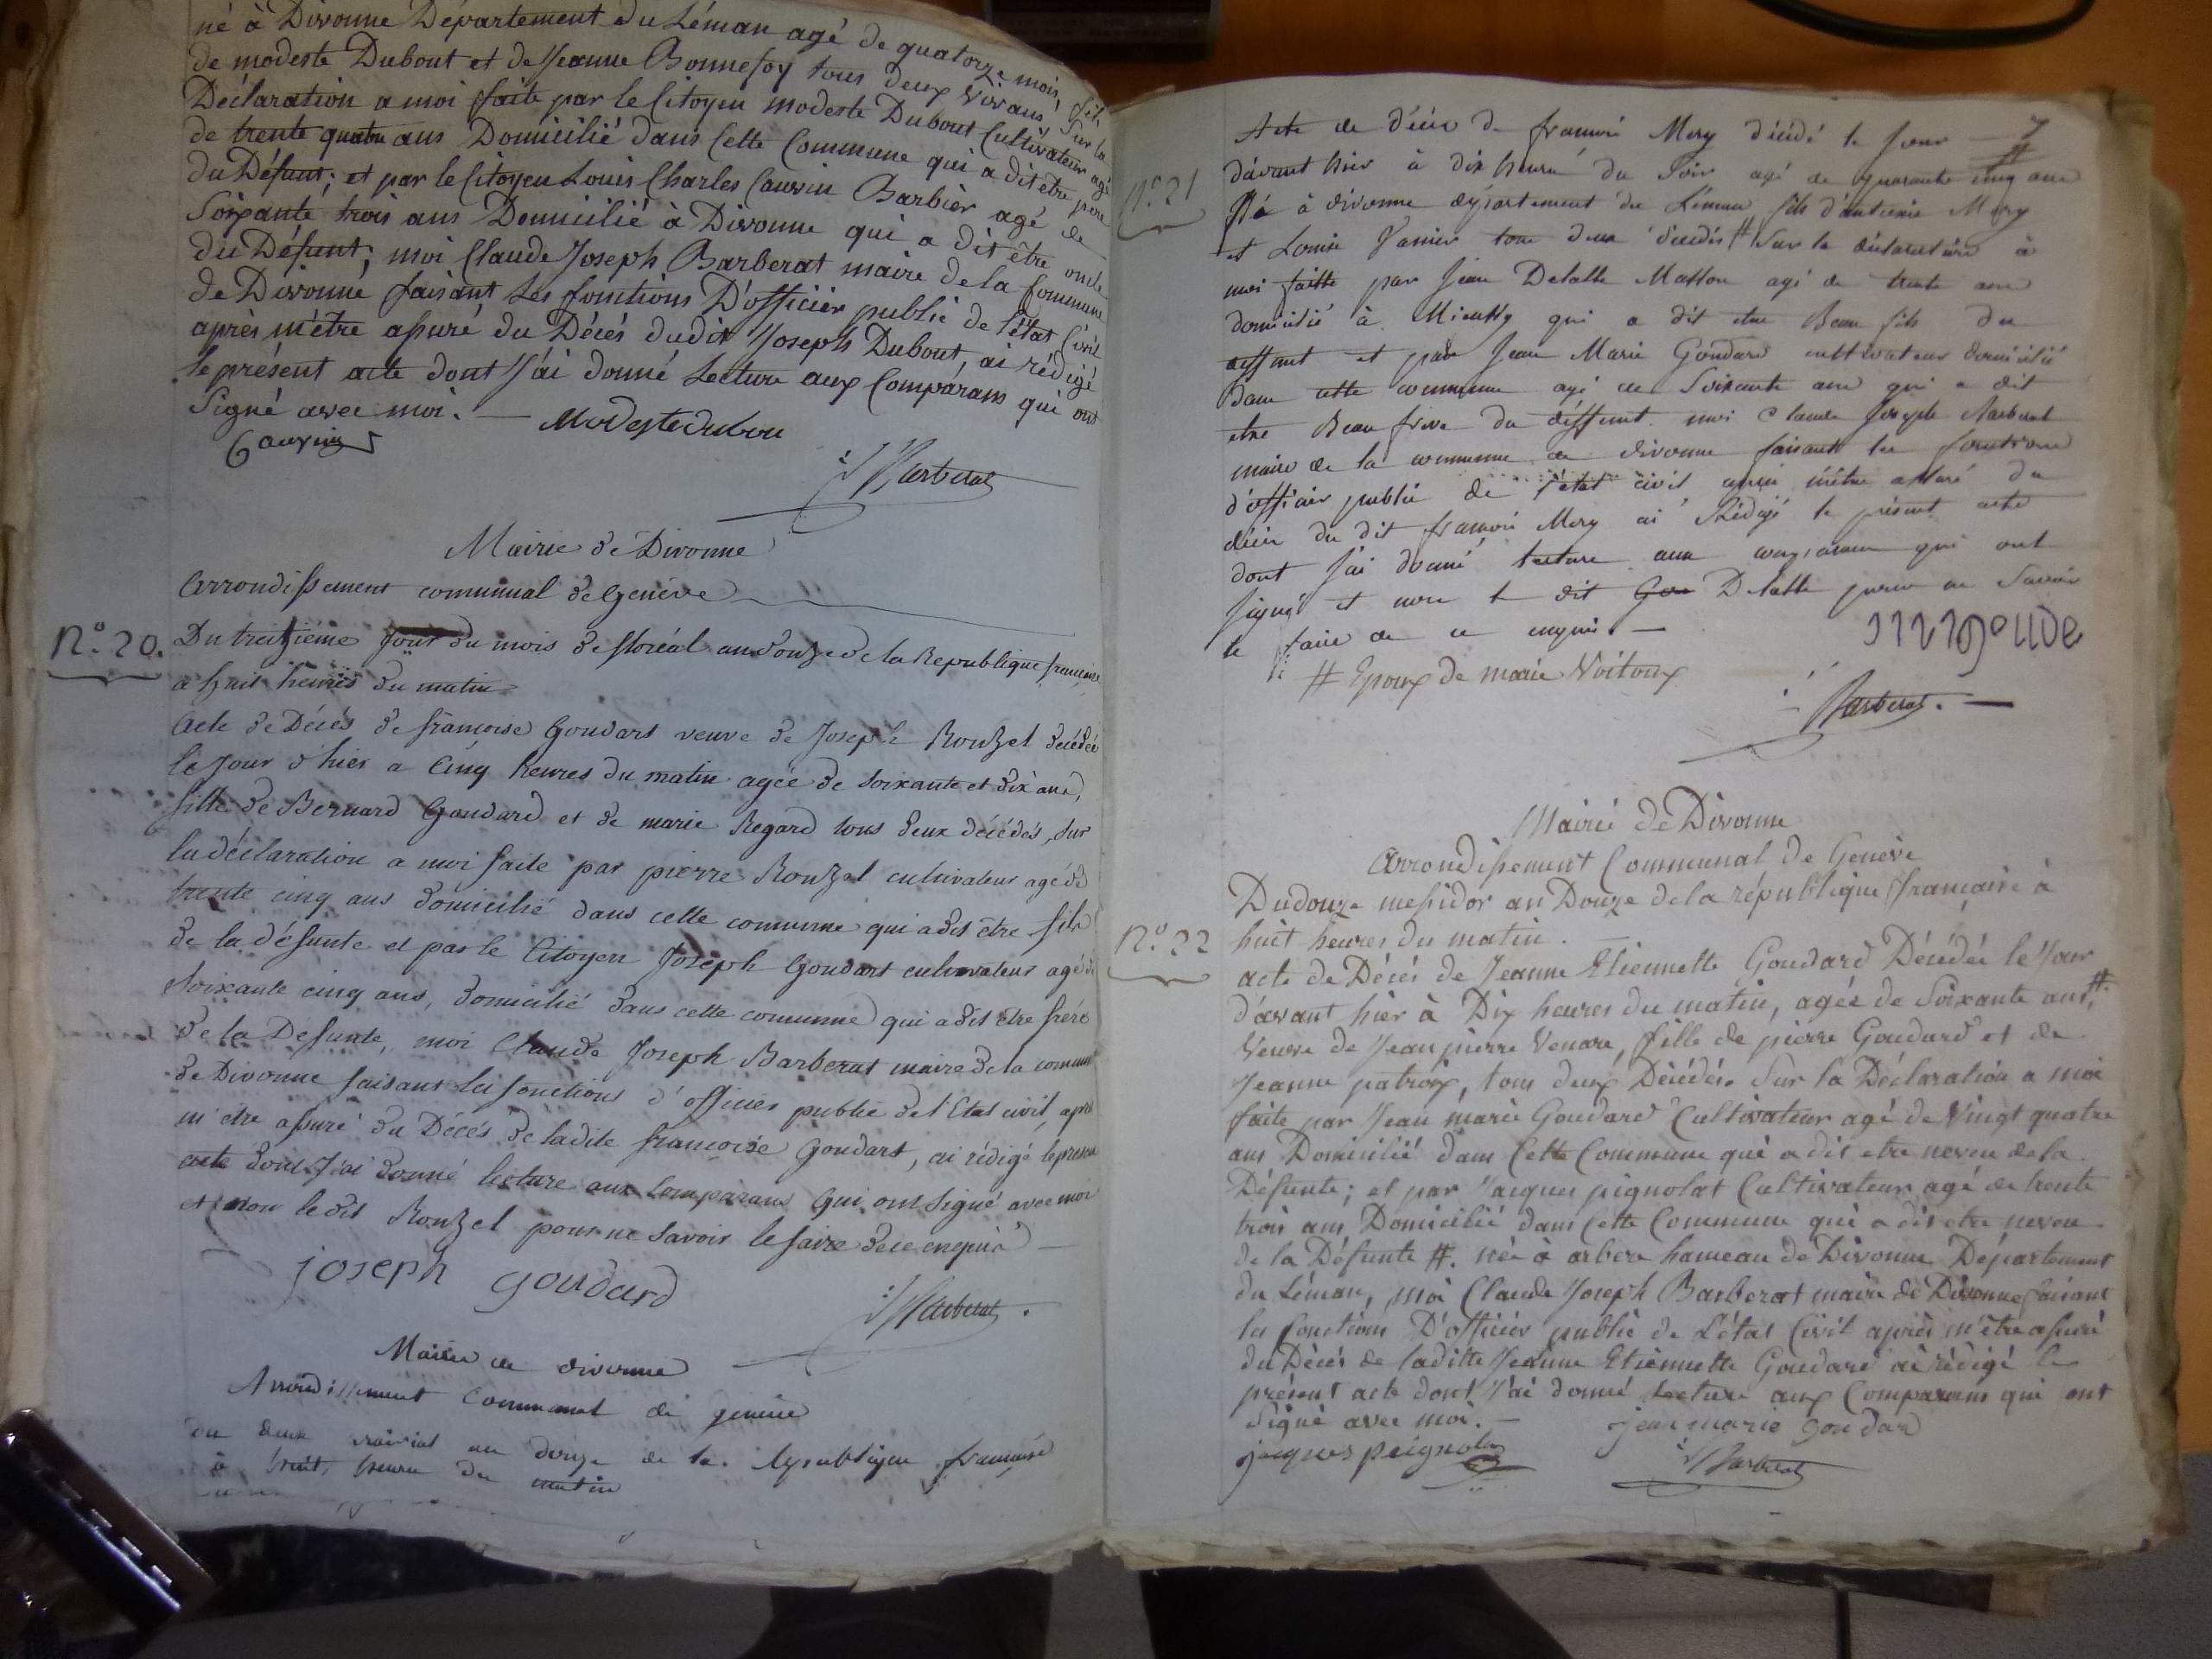 né à Divonne Département du Léman agé de quatorze mois, fils
de modeste Dubout et de Jeanne Bonnefoy tous deux vivans, sur la
Déclaration a moi faite par le Citoyen modeste Dubout Cultivateur agé
de trente quatre ans Domicilié dans Cette Commune qui a dit être pere
du Défunt; et par le Citoyen Louis Charles Cauvin Barbier agé de
Soixante trois ans Domicilié à Divonne qui a dit être oncle
du Défunt; moi Claude Joseph Barberat maire de la Commune
de Divonne faisant les fonctions D'officier public de l'état Civil
après m'être assuré du Décès dudit Joseph Dubout, ai rédigé
le présent acte dont J'ai donné Lecture aux Comparans qui ont
Signé avec moi. — Modeste dubou
Cauvin
Barberat
Mairie de Divonne
Arrondissement communal de Genève
N.o 20.
Du treizième jour du mois de floréal an douze de la Republique francaise
a huit heures du matin
Acte de Décés de francoise Goudart veuve de Joseph Rouzet decédée
le Jour d'hier a Cinq heures du matin agée de soixante et dix ans,
fille de Bernard Goudard et de marie Regard tous deux décédés, sur
la déclaration a moi faite par pierre Rouzet cultivateur agé de
trente cinq ans domicilié dans cette commune qui a dit être fils
de la défunte et par le Citoyen Joseph Goudart cultivateur agé de
soixante cinq ans, domicilié dans cette commune qui a dit être frère
de la Defunte, moi Claude Joseph Barberat maire de la commune
de Divonne faisant les fonctions d'officier public de l'Etat civil, après
m'être assuré du Décés de ladite francoise Goudart, ai rédigé le présent
acte dont J'ai donné lecture aux comparans qui ont signé avec moi
et non le dit Rouzet pour ne savoir le faire de ce enquis
joseph goudard
Barberat.
Mairie de divonne
Arrondissement Communal de geneive
du deux prairial an douze de la République francaise
à huit heures du matin
7
Acte de décès de francois Mery décédé le jour
d'avant hier à dix heures du Soir agé de quarante cinq ans
N.o 21
Né à divonne département du Léman fils d'antoine Mery
et Louise Vanier tous deux décédés # Sur la déclaration à
moi faitte par Jean Delatte Masson agé de trente ans
domicilié à Mieussy qui a dit etre Beau fils du
deffunt et par Jean Marie Goudard cultivateur domicilié
dans cette commune agé de Soixante ans qui a dit
etre Beau frere du déffunt. moi Claude Joseph Barberat
maire de la commune de divonne faisant les fonctions
d'officier public de l'état civil après m'être assuré du
décès du dit francois Mery ai Rédigé le présent acte
dont j'ai donné lecture aux comparans qui ont
signé et non le dit Delatte pour ne Savoir
le faire de ce enquis. —
# Epoux de marie Voitoux
Barberat. —
Mairie de Divonne
Arrondissement Communal de Genève
Du douze messidor an Douze de la république française à
N.o 22
huit heures du matin.
acte de Décés de Jeanne Etiennette Goudard Décédée le Jour
d'avant hier à Dix heures du matin, agée de Soixante ans, #
Veuve de Jean pierre Venare, fille de pierre Goudard et de
Jeanne patroix, tous deux Décédés. Sur la Déclaration a moi
faite par Jean marie Goudard Cultivateur agé de Vingt quatre
ans Domicilié dans Cette Commune qui a dit etre neveu de la
Défunte; et par Jacques pignolat Cultivateur agé de trente
trois ans Domicilié dans Cette Commune qui a dit etre neveu
de la Défunte #. née à arbere hameau de Divonne Département
du Léman, moi Claude Joseph Barberat maire de Divonne faisant
les fonctions D'officier public de L'état Civil après m'être assuré
du Décés de laditte Jeanne Etiennette Goudard ai rédigé le
présent acte dont J'ai donné Lecture aux Comparans qui ont
Signé avec moi. — jean marie goudard
jacques peignolat
Barberat